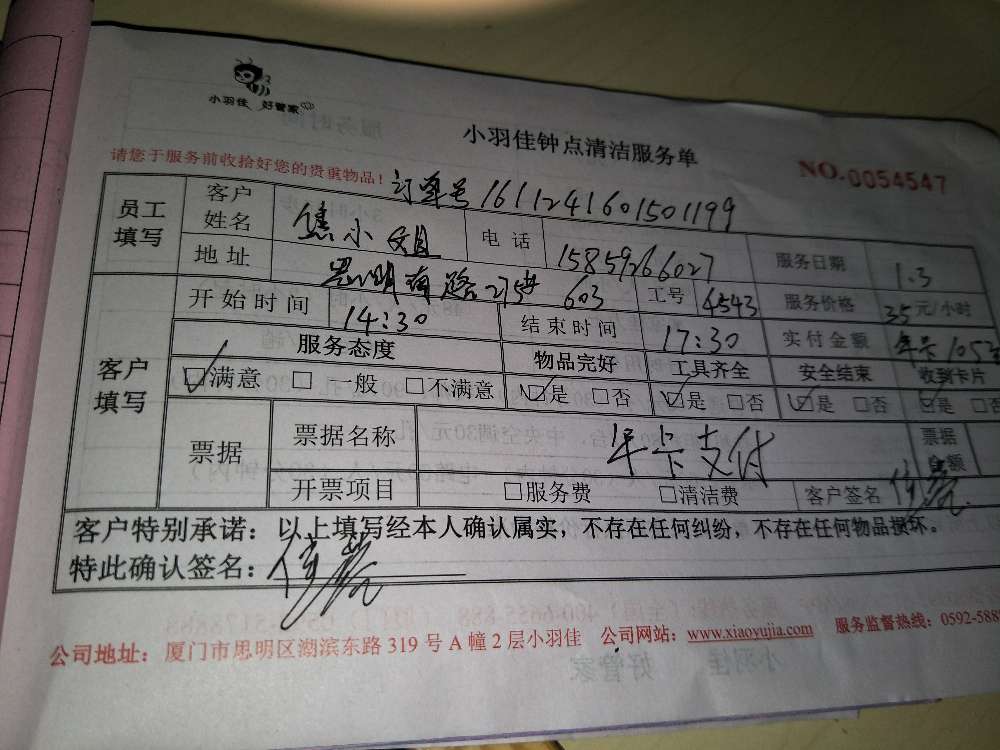 小羽佳 好管家
小羽佳钟点清洁服务单
请您于服务前收拾好您的贵重物品！
NO.0054547
订单号1611241601501199
员工填写 客户姓名 焦小姐 电话 15859266027 服务日期 1.3
地址 思明南路 603 工号 4543 服务价格 35元/小时
客户填写 开始时间 14:30 结束时间 17:30 实付金额 年卡105
服务态度 物品完好 工具齐全 安全结束 收到卡片
☑满意 □一般 □不满意 ☑是 □否 ☑是 □否 ☑是 □否 ☑是 □否
票据 票据名称 年卡支付 票据金额
开票项目 □服务费 □清洁费 客户签名
客户特别承诺：以上填写经本人确认属实，不存在任何纠纷，不存在任何物品损坏。
特此确认签名：
公司地址：厦门市思明区湖滨东路319号A幢2层小羽佳 公司网站：www.xiaoyujia.com 服务监督热线：0592-588